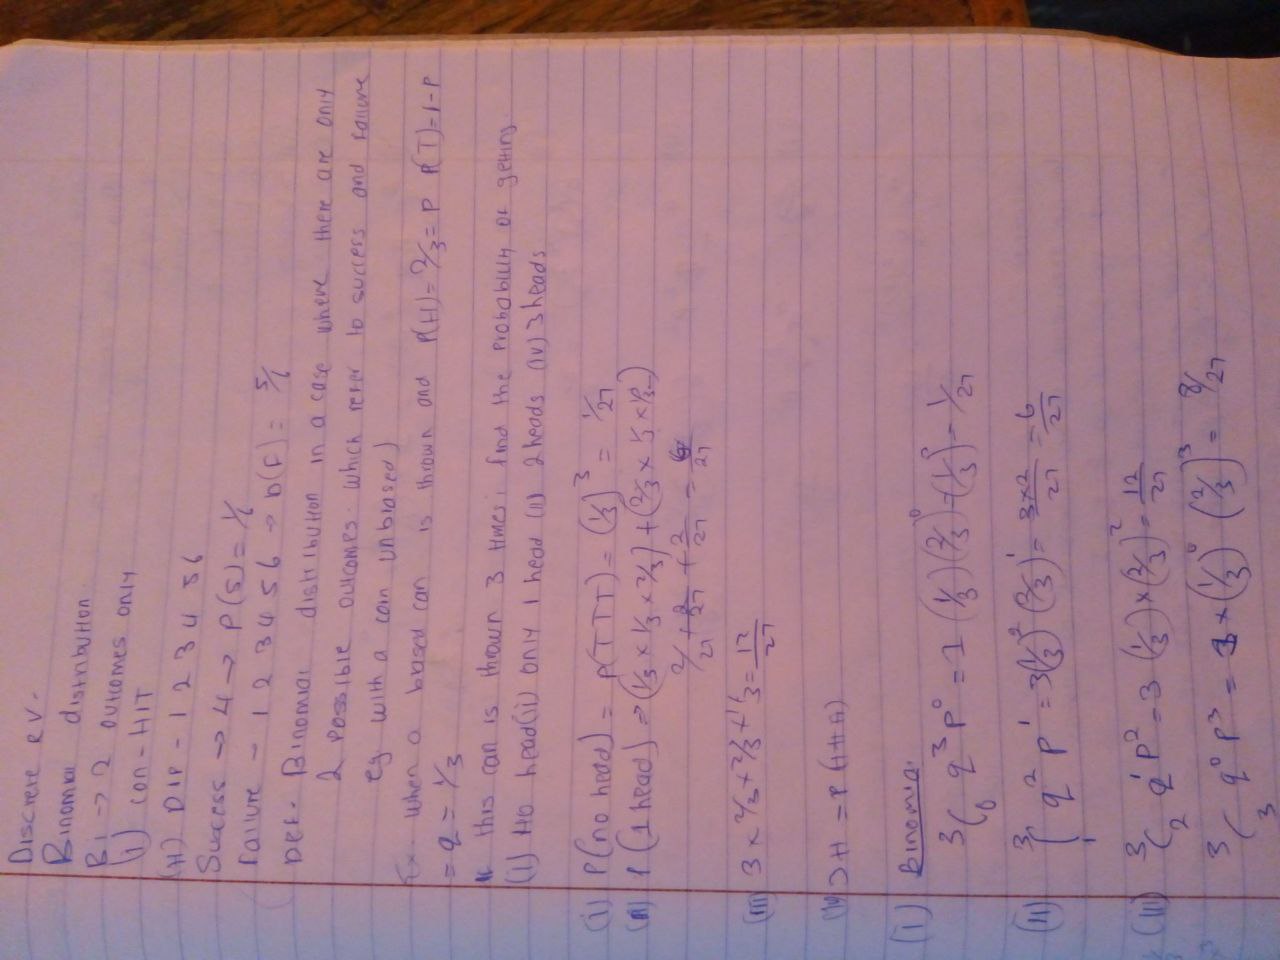 Discrete RV.
Binomial distribution
Bi → 2 outcomes only
(i) con - HIT
(ii) DIP - 1 2 3 4 56
Success → 4 → P(S) = 1/6
Failure - 1 2 3 4 5 6 → P(F) = 5/6
Def. Binomial distribution in a case where there are only
2 possible outcomes which refer to success and failure
eg with a coin unbiased)
Ex. When a biased can is thrown and P(H) = 2/3 = P P(T) = 1 - P
= q = 1/3
If this can is thrown 3 times, find the probability of getting
(i) No head (ii) only 1 head (ii) 2 heads (iv) 3 heads
(i) P(no head) = P(TTT) = (1/3)^3 = 1/27
(ii) P(1 head) → (1/3 × 1/3 × 2/3) + (2/3 × 1/3 × 1/3)
2/27 + 2/27 + 2/27 = 6/27
(iii) 3 × 2/3 + 2/3 + 1/3 = 12/27
(iv) 3H = P(HHH)
(i) Binomial
3C0 q^3 P^0 = 1 (1/3) (2/3)^0 = (1/3) = 1/27
(ii) 3C1 q^2 P^1 = 3(1/3)^2 (2/3)^1 = 3×2/27 = 6/27
(iii) 3C2 q^1 P^2 = 3 (1/3) × (2/3)^2 = 12/27
3C3 q^0 P^3 = 1 × (1/3)^0 (2/3)^3 = 8/27